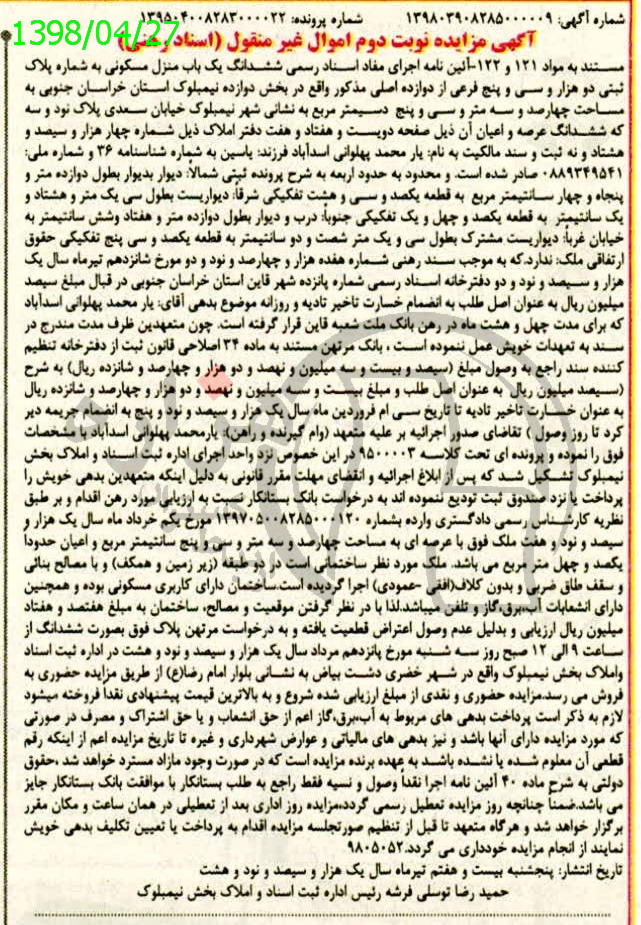 شماره آگهی: ۱۳۹۸۰۳۹۰۸۲۸۵۰۰۰۰۰۹ شماره پرونده: ۱۳۹۵۰۴۰۰۸۲۸۳۰۰۰۰۲۲
1398/04/27
آگهی مزایده نوبت دوم اموال غیر منقول (اسناد رهنی)
مستند به مواد ۱۲۱ و ۱۲۲-آئین نامه اجرای مفاد اسناد رسمی ششدانگ یک باب منزل مسکونی به شماره پلاک
ثبتی دو هزار و سی و پنج فرعی از دوازده اصلی مذکور واقع در بخش دوازده نیمبلوک استان خراسان جنوبی به
مساحت چهارصد و سه متر و سی و پنج دسیمتر مربع به نشانی شهر نیمبلوک خیابان سعدی پلاک نود و سه
که ششدانگ عرصه و اعیان آن ذیل صفحه دویست و هفتاد و هفت دفتر املاک ذیل شماره چهار هزار و سیصد و
هشتاد و نه ثبت و سند مالکیت به نام: یار محمد پهلوانی اسدآباد فرزند: یاسین به شماره شناسنامه ۳۶ و شماره ملی:
۰۸۸۹۳۴۹۵۴۱ صادر شده است. و محدود به حدود اربعه به شرح پرونده ثبتی شمالاً: دیوار بدیوار بطول دوازده متر و
پنجاه و چهار سانتیمتر مربع به قطعه یکصد و سی و هشت تفکیکی شرقاً: دیواریست بطول سی یک متر و هشتاد و
یک سانتیمتر به قطعه یکصد و چهل و یک تفکیکی جنوباً: درب و دیوار بطول دوازده متر و هفتاد وشش سانتیمتر به
خیابان غرباً: دیواریست مشترک بطول سی و یک متر شصت و دو سانتیمتر به قطعه یکصد و سی پنج تفکیکی حقوق
ارتفاقی ملک: ندارد.که به موجب سند رهنی شماره هفده هزار و چهارصد و نود و دو مورخ شانزدهم تیرماه سال یک
هزار و سیصد و نود و دو دفترخانه اسناد رسمی شماره پانزده شهر قاین استان خراسان جنوبی در قبال مبلغ سیصد
میلیون ریال به عنوان اصل طلب به انضمام خسارت تاخیر تادیه و روزانه موضوع بدهی آقای: یار محمد پهلوانی اسدآباد
که برای مدت چهل و هشت ماه در رهن بانک ملت شعبه قاین قرار گرفته است. چون متعهدین ظرف مدت مندرج در
سند به تعهدات خویش عمل ننموده است ، بانک مرتهن مستند به ماده ۳۴ اصلاحی قانون ثبت از دفترخانه تنظیم
کننده سند راجع به وصول مبلغ (سیصد و بیست و سه میلیون و نهصد و دو هزار و چهارصد و شانزده ریال) به شرح
(سیصد میلیون ریال به عنوان اصل طلب و مبلغ بیست و سه میلیون و نهصد و دو هزار و چهارصد و شانزده ریال
به عنوان خسارت تاخیر تادیه تا تاریخ سی ام فروردین ماه سال یک هزار و سیصد و نود و پنج به انضمام جریمه دیر
کرد تا روز وصول ) تقاضای صدور اجرائیه بر علیه متعهد (وام گیرنده و راهن): یارمحمد پهلوانی اسدآباد با مشخصات
فوق را نموده و پرونده ای تحت کلاسه ۹۵۰۰۰۰۳ در این خصوص نزد واحد اجرای اداره ثبت اسناد و املاک بخش
نیمبلوک تشکیل شد که پس از ابلاغ اجرائیه و انقضای مهلت مقرر قانونی به دلیل اینکه متعهدین بدهی خویش را
پرداخت یا نزد صندوق ثبت تودیع ننموده اند به درخواست بانک بستانکار نسبت به ارزیابی مورد رهن اقدام و بر طبق
نظریه کارشناس رسمی دادگستری وارده بشماره ۱۳۹۷۰۵۰۰۸۲۸۵۰۰۰۱۲۰ مورخ یکم خرداد ماه سال یک هزار و
سیصد و نود و هفت ملک فوق با عرصه ای به مساحت چهارصد و سه متر و سی و پنج سانتیمتر مربع و اعیان حدوداً
یکصد و چهل متر مربع می باشد. ملک مورد نظر ساختمانی است در دو طبقه (زیر زمین و همکف) و با مصالح بنائی
و سقف طاق ضربی و بدون کلاف(افقی -عمودی) اجرا گردیده است.ساختمان دارای کاربری مسکونی بوده و همچنین
دارای انشعابات آب،برق،گاز و تلفن میباشد.لذا با در نظر گرفتن موقعیت و مصالح، ساختمان به مبلغ هفتصد و هفتاد
میلیون ریال ارزیابی و بدلیل عدم وصول اعتراض قطعیت یافته و به درخواست مرتهن پلاک فوق بصورت ششدانگ از
ساعت ۹ الی ۱۲ صبح روز سه شنبه مورخ پانزدهم مرداد سال یک هزار و سیصد و نود و هشت در اداره ثبت اسناد
واملاک بخش نیمبلوک واقع در شهر خضری دشت بیاض به نشانی بلوار امام رضا(ع) از طریق مزایده حضوری به
فروش می رسد.مزایده حضوری و نقدی از مبلغ ارزیابی شده شروع و به بالاترین قیمت پیشنهادی نقدا فروخته میشود
لازم به ذکر است پرداخت بدهی های مربوط به آب،برق،گاز اعم از حق انشعاب و یا حق اشتراک و مصرف در صورتی
که مورد مزایده دارای آنها باشد و نیز بدهی های مالیاتی و عوارض شهرداری و غیره تا تاریخ مزایده اعم از اینکه رقم
قطعی آن معلوم شده یا نشده باشد به عهده برنده مزایده است که در صورت وجود مازاد مسترد خواهد شد ،حقوق
دولتی به شرح ماده ۴۰ آئین نامه اجرا نقداً وصول و نسیه فقط راجع به طلب بستانکار با موافقت بانک بستانکار جایز
می باشد.ضمناً چنانچه روز مزایده تعطیل رسمی گردد،مزایده روز اداری بعد از تعطیلی در همان ساعت و مکان مقرر
برگزار خواهد شد و هرگاه متعهد تا قبل از تنظیم صورتجلسه مزایده اقدام به پرداخت یا تعیین تکلیف بدهی خویش
نمایند از انجام مزایده خودداری می گردد.۹۸۰۵۰۵۲
تاریخ انتشار: پنجشنبه بیست و هفتم تیرماه سال یک هزار و سیصد و نود و هشت
حمید رضا توسلی فرشه رئیس اداره ثبت اسناد و املاک بخش نیمبلوک